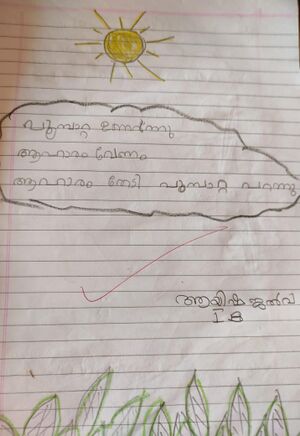 പൂമ്പാറ്റ ഉണർന്നു
ആഹാരം വേണം
ആഹാരം തേടി പൂമ്പാറ്റ പറന്നു
ആയിഷ ജൽവ
I B